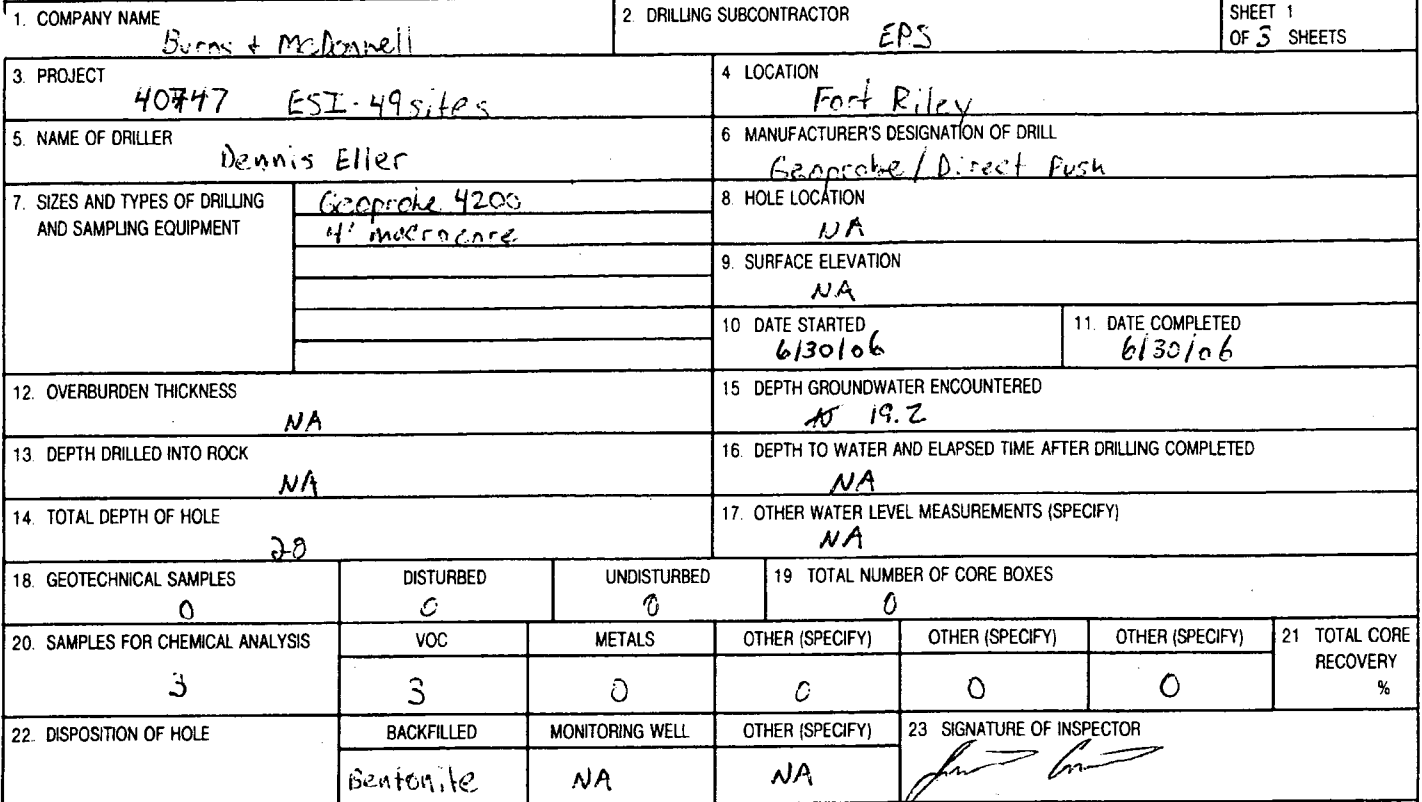 1. COMPANY NAME
Burns & McDonnell
2. DRILLING SUBCONTRACTOR
EPS
SHEET 1
OF 3 SHEETS
3. PROJECT
40747 ESI-49sites
4 LOCATION
Fort Riley
5. NAME OF DRILLER
Dennis Eller
6 MANUFACTURER'S DESIGNATION OF DRILL
Geoprobe / Direct Push
7. SIZES AND TYPES OF DRILLING
AND SAMPLING EQUIPMENT
Geoprobe 4200
4' macrocore
8. HOLE LOCATION
NA
9. SURFACE ELEVATION
NA
10 DATE STARTED
6/30/06
11. DATE COMPLETED
6/30/06
12. OVERBURDEN THICKNESS
NA
15 DEPTH GROUNDWATER ENCOUNTERED
19.2
13. DEPTH DRILLED INTO ROCK
NA
16. DEPTH TO WATER AND ELAPSED TIME AFTER DRILLING COMPLETED
NA
14. TOTAL DEPTH OF HOLE
28
17. OTHER WATER LEVEL MEASUREMENTS (SPECIFY)
NA
18. GEOTECHNICAL SAMPLES
0
DISTURBED
0
UNDISTURBED
0
19 TOTAL NUMBER OF CORE BOXES
0
20. SAMPLES FOR CHEMICAL ANALYSIS
3
VOC
3
METALS
0
OTHER (SPECIFY)
0
OTHER (SPECIFY)
0
OTHER (SPECIFY)
0
21 TOTAL CORE
RECOVERY
%
22. DISPOSITION OF HOLE
BACKFILLED
Bentonite
MONITORING WELL
NA
OTHER (SPECIFY)
NA
23 SIGNATURE OF INSPECTOR